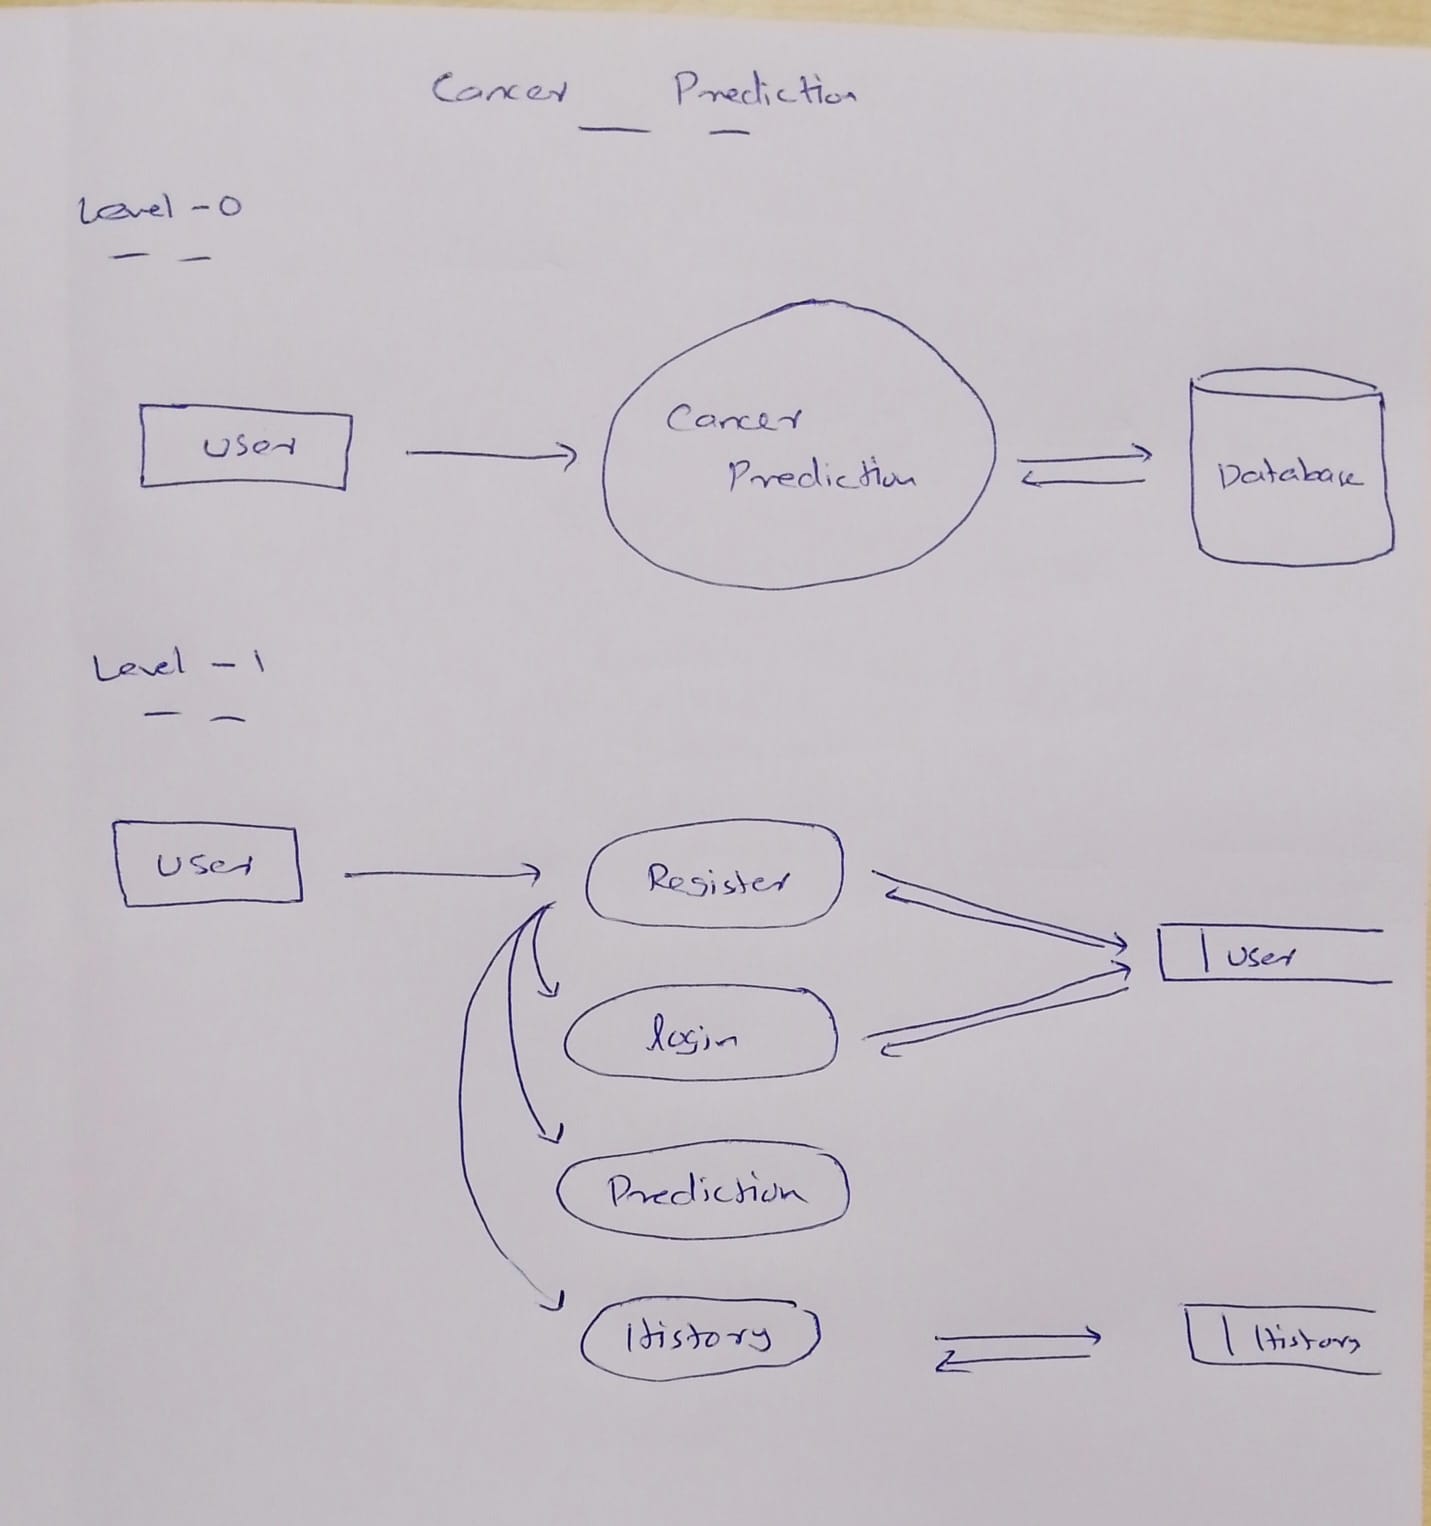 Cancer Prediction
Level - 0
User
Cancer
Prediction
Database
Level - 1
User
Register
User
login
Prediction
History
History